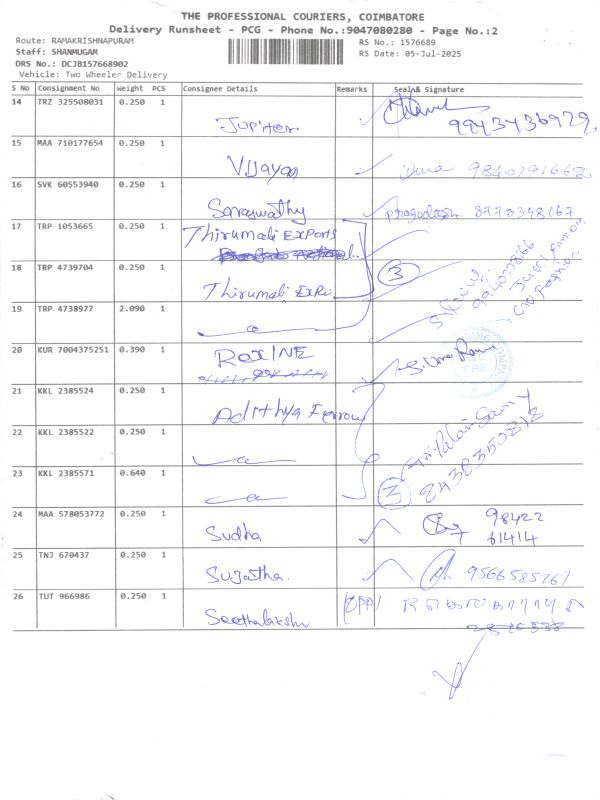 THE PROFESSIONAL COURIERS, COIMBATORE
Delivery Runsheet - PCG - Phone No.:9047080280 - Page No.:2
Route: RAMAKRISHNAPURAM RS No.: 1576689
Staff: SHANMUGAM RS Date: 05-Jul-2025
DRS No.: DCJB157668902
Vehicle: Two Wheeler Delivery
S No Consignment No Weight PCS Consignee Details Remarks Seal & Signature
14 TRZ 325508031 0.250 1
Jupiter 9943436929
15 MAA 710177654 0.250 1
Vijayan Uma 9840191662
16 SVK 60553940 0.250 1
Saraswathy Pragadesh 8773348167
17 TRP 1053665 0.250 1
Thirumali Exports
18 TRP 4739704 0.250 1
Thirumali 3
19 TRP 4738977 2.090 1
20 KUR 7004375251 0.390 1
ROXINE S. Uma
21 KKL 2385524 0.250 1
Adithya Ferrow
22 KKL 2385522 0.250 1
8438350818
23 KKL 2385571 0.640 1
3
24 MAA 578053772 0.250 1
Sudha 98422
61414
25 TNJ 670437 0.250 1
Sujatha. 9566585767
26 TUT 966986 0.250 1
Seethalakshmi (OPP)